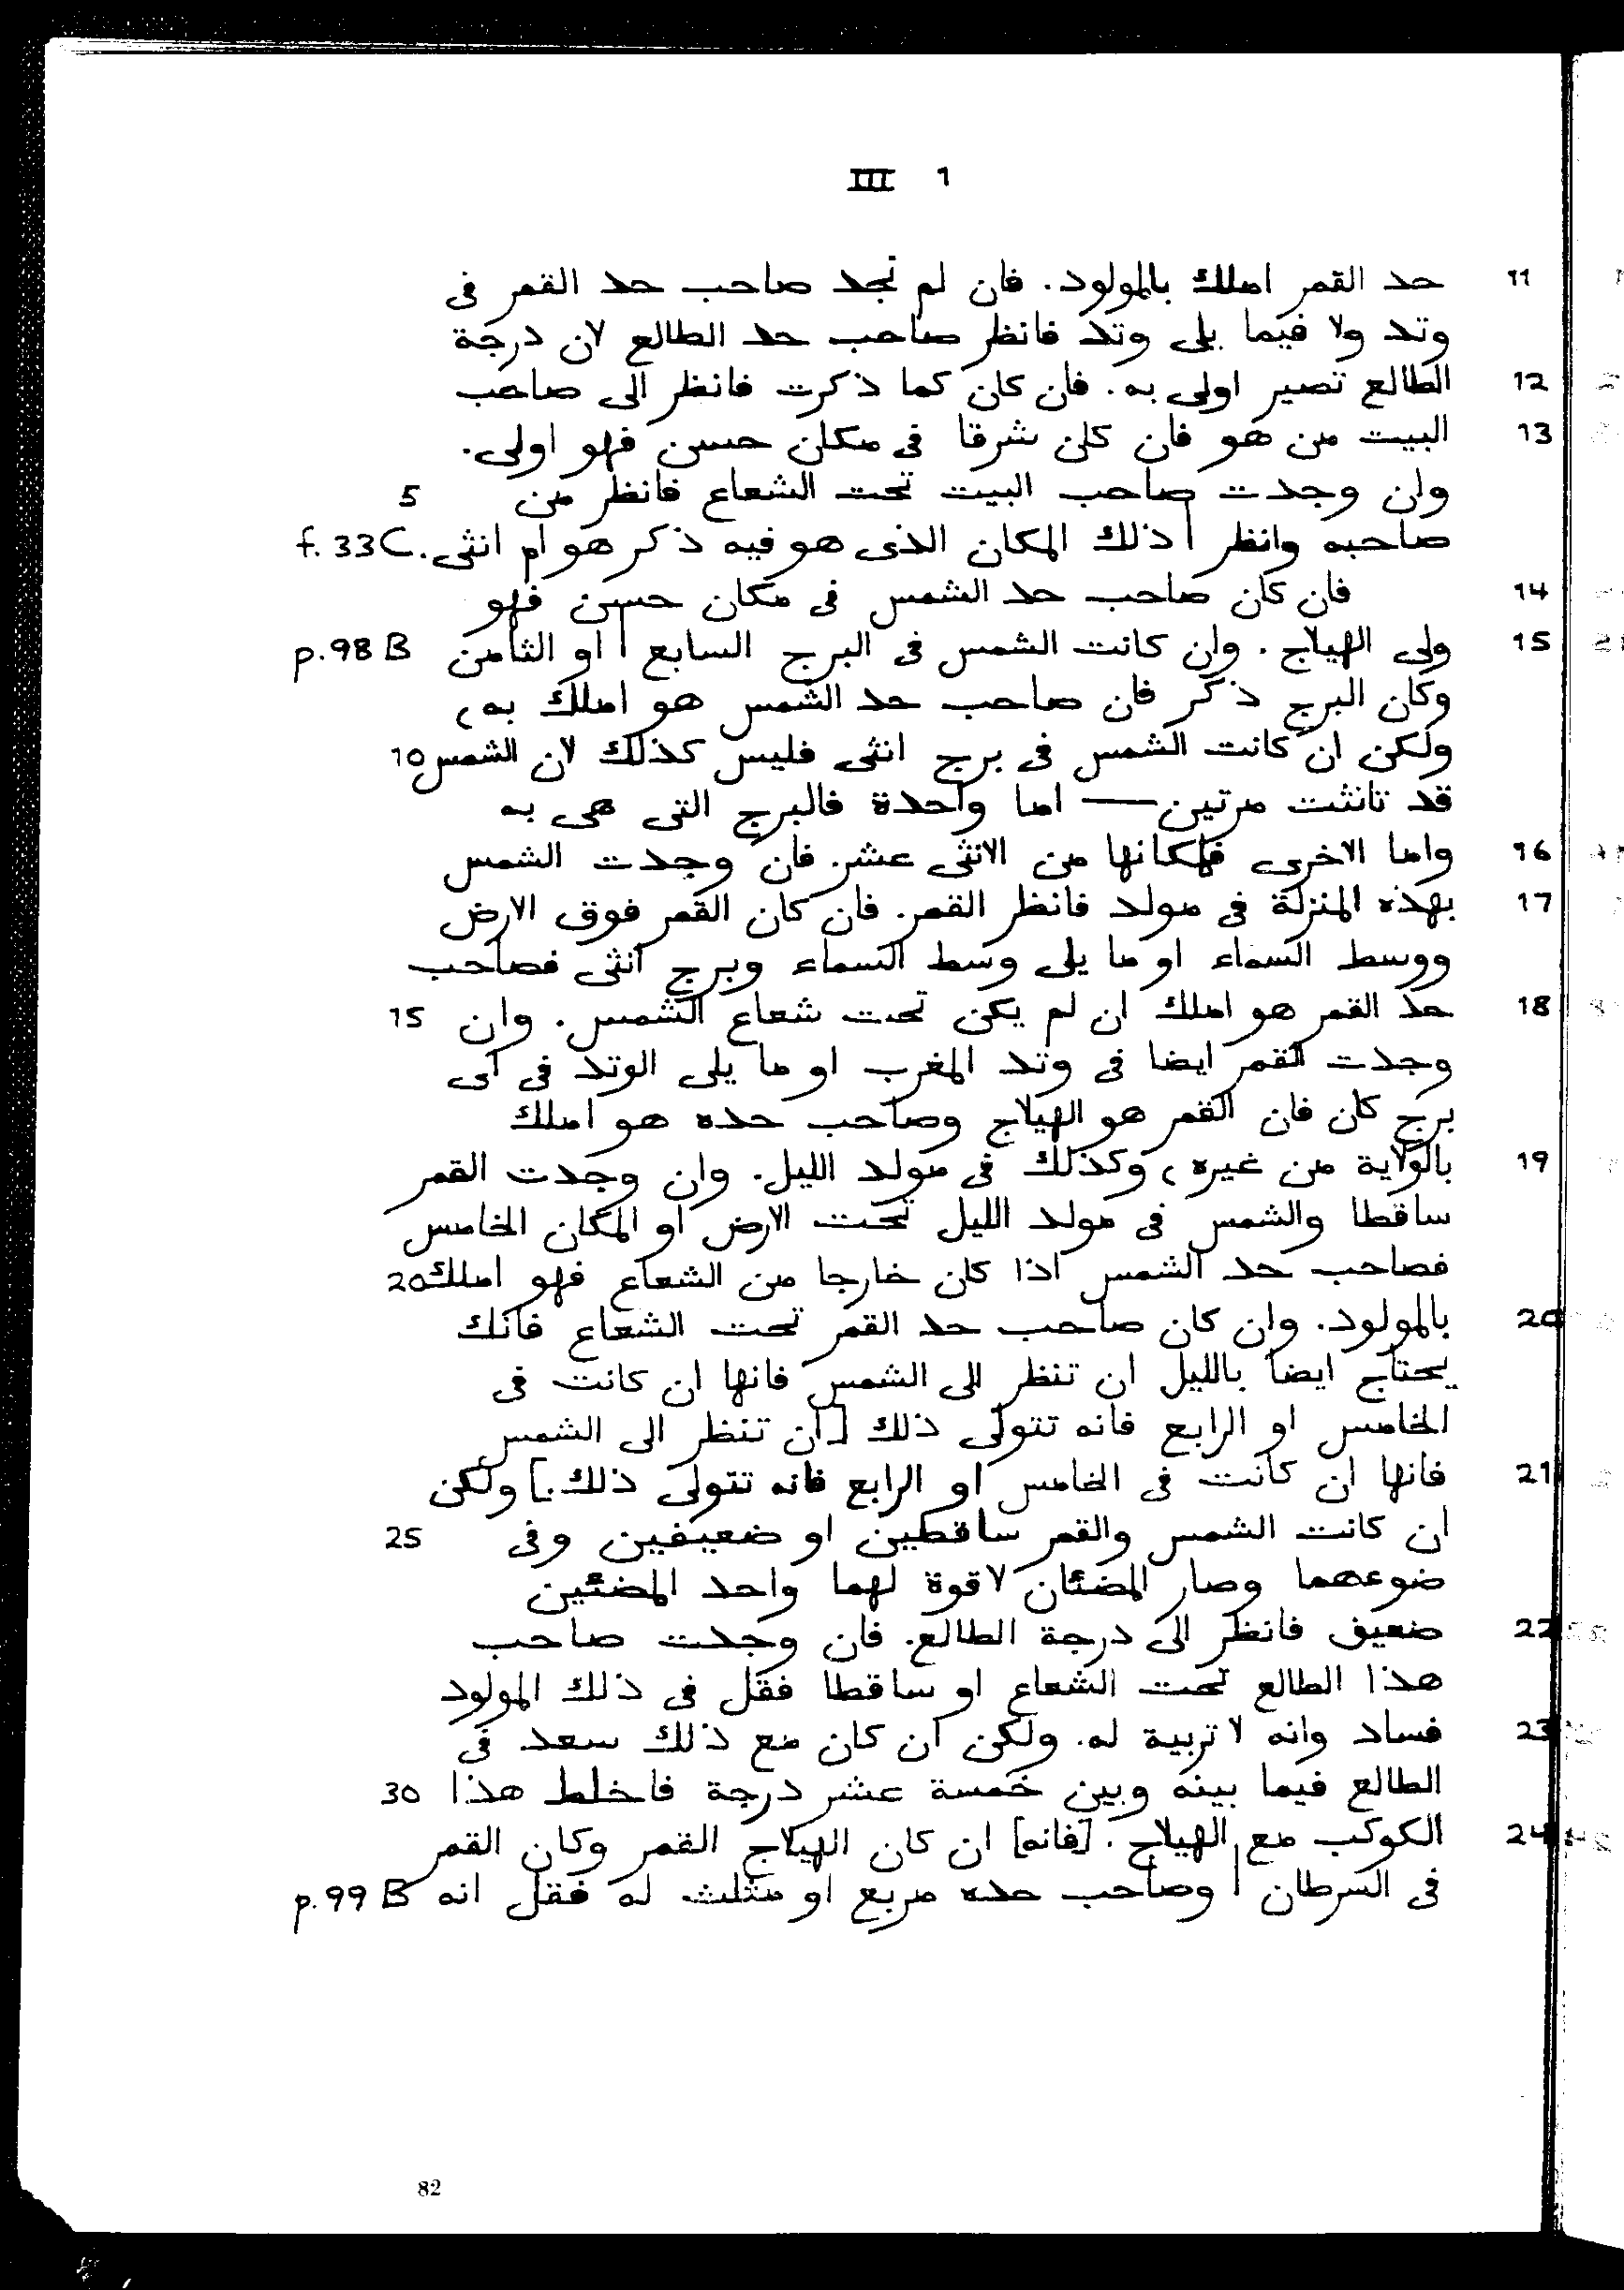 III 1
11 حد القمر املك بالمولود. فان لم تجد صاحب حد القمر فى
وتد ولا فيما يلى وتد فانظر صاحب حد الطالع لان درجة
12 الطالع تصير اولى به. فان كان كما ذكرت فانظر الى صاحب
13 البيت من هو فان كان شرقا فى مكان حسن فهو اولى.
وان وجدت صاحب البيت تحت الشعاع فانظر من 5
صاحبه وانظر | ذلك المكان الذى هو فيه ذكر هو ام انثى. f. 33C
14 فان كان صاحب حد الشمس فى مكان حسن فهو
15 ولى الهيلاج. وان كانت الشمس فى البرج السابع | او الثامن p. 98 B
وكان البرج ذكر فان صاحب حد الشمس هو املك به،
ولكن ان كانت الشمس فى برج انثى فليس كذلك لان الشمس 10
قد تانثت مرتين — اما واحدة فالبرج التى هى به
16 واما الاخرى فلمكانها من الانثى عشر. فان وجدت الشمس
17 بهذه المنزلة فى مولد فانظر القمر. فان كان القمر فوق الارض
ووسط السماء او ما يلى وسط السماء وبرج انثى فصاحب
18 حد القمر هو املك ان لم يكن تحت شعاع الشمس. وان 15
وجدت القمر ايضا فى وتد المغرب او ما يلى الوتد فى اى
برج كان فان القمر هو الهيلاج وصاحب حده هو املك
19 بالولاية من غيره، وكذلك فى مولد الليل. وان وجدت القمر
ساقطا والشمس فى مولد الليل تحت الارض او المكان الخامس
فصاحب حد الشمس اذا كان خارجا من الشعاع فهو املك 20
20 بالمولود. وان كان صاحب حد القمر تحت الشعاع فانك
يحتاج ايضا بالليل ان تنظر الى الشمس فانها ان كانت فى
الخامس او الرابع فانه تتولى ذلك [ان تنظر الى الشمس
21 فانها ان كانت فى الخامس او الرابع فانه تتولى ذلك.] ولكن
ان كانت الشمس والقمر ساقطين او ضعيفين وفى 25
ضوءهما وصار المضئان لا قوة لهما واحد المضئين
22 ضعيف فانظر الى درجة الطالع. فان وجدت صاحب
هذا الطالع تحت الشعاع او ساقطا فقل فى ذلك المولود
23 فساد وانه لا تربية له. ولكن ان كان مع ذلك سعد فى
الطالع فيما بينه وبين خمسة عشر درجة فاخلط هذا 30
24 الكوكب مع الهيلاج. [فانه] ان كان الهيلاج القمر وكان القمر
فى السرطان | وصاحب حده مربع او مثلث له فقل انه p. 99 B
82